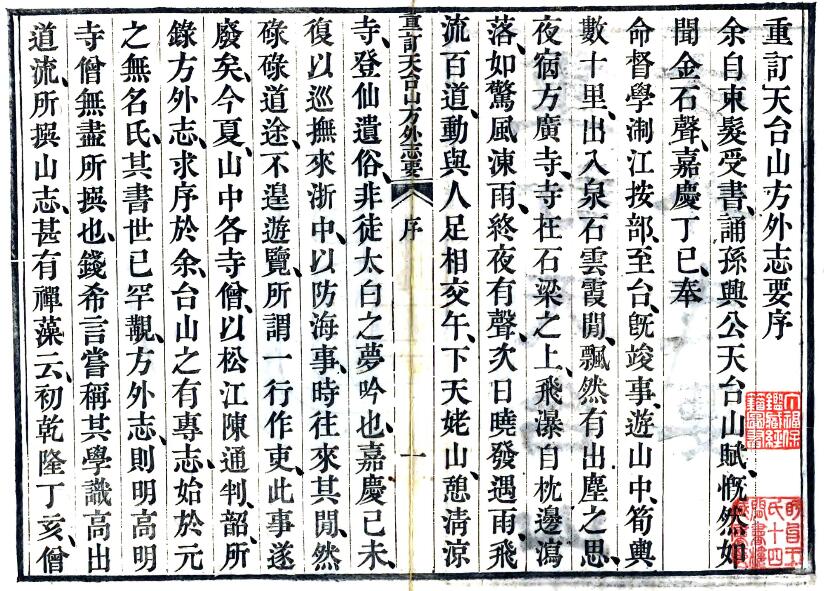 重訂天台山方外志要序
余自束髮受書、誦孫興公天台山賦、慨然如
聞金石聲、嘉慶丁巳、奉
命督學淛江按部至台、旣竣事、遊山中、筍輿
數十里、出入泉石雲霞閒、飄然有出塵之思、
夜宿方廣寺、寺在石梁之上、飛瀑自枕邊瀉
落、如驚風凍雨、終夜有聲、次日曉發遇雨、飛
流百道、動與人足相交午、下天姥山、憩淸涼
重訂天台山方外志要 序 一
寺、登仙遺俗、非徒太白之夢吟也、嘉慶己未、
復以巡撫來浙中、以防海事、時往來其閒、然
碌碌道途、不遑遊覽、所謂一行作吏、此事遂
廢矣、今夏、山中各寺僧、以松江陳通判、韶、所
錄方外志、求序於余、台山之有專志、始於元
之無名氏、其書世已罕覯、方外志、則明高明
寺僧無盡所撰也、錢希言嘗稱其學識高出
道流、所撰山志、甚有禪藻云、初乾隆丁亥、僧